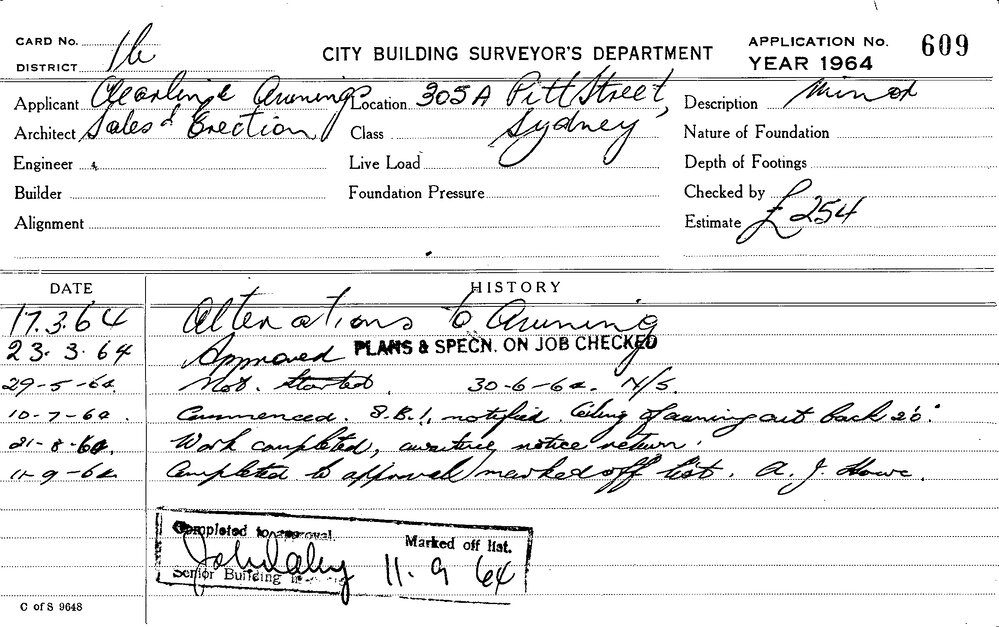 CARD No.
DISTRICT 1b
CITY BUILDING SURVEYOR'S DEPARTMENT
APPLICATION No. 609
YEAR 1964
Applicant Awnings
Architect Sales & Erection
Engineer
Builder
Alignment
Location 305A Pitt Street,
Class Sydney
Live Load
Foundation Pressure
Description Minor
Nature of Foundation
Depth of Footings
Checked by
Estimate £254
DATE HISTORY
17.3.64 Alterations to Awning
23.3.64 Approved PLANS & SPECN. ON JOB CHECKED
29-5-64. Not. Started. 30-6-64. N/S.
10-7-64. Commenced. S.B.I. notified. Ceiling of awning cut back 2'0".
21-8-64. Work completed, awaiting notice return.
11-9-64 Completed to approval marked off list. A. J. Howe.
Completed to approval. Marked off list.
11. 9 64
Senior Building
C of S 9648